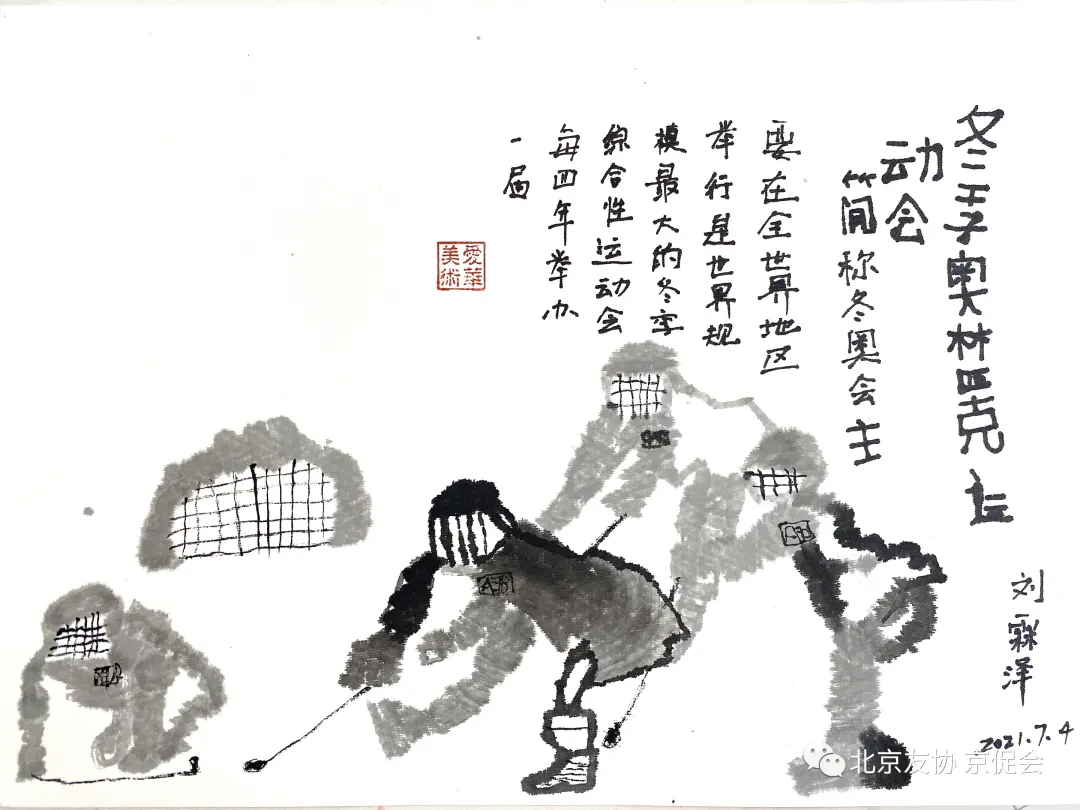 冬季奥林匹克运
动会
简称冬奥会主
要在全世界地区
举行是世界规
模最大的冬季
综合性运动会
每四年举办
一届
愛華
美術
刘霖泽
2021.7.4
北京友协 京促会